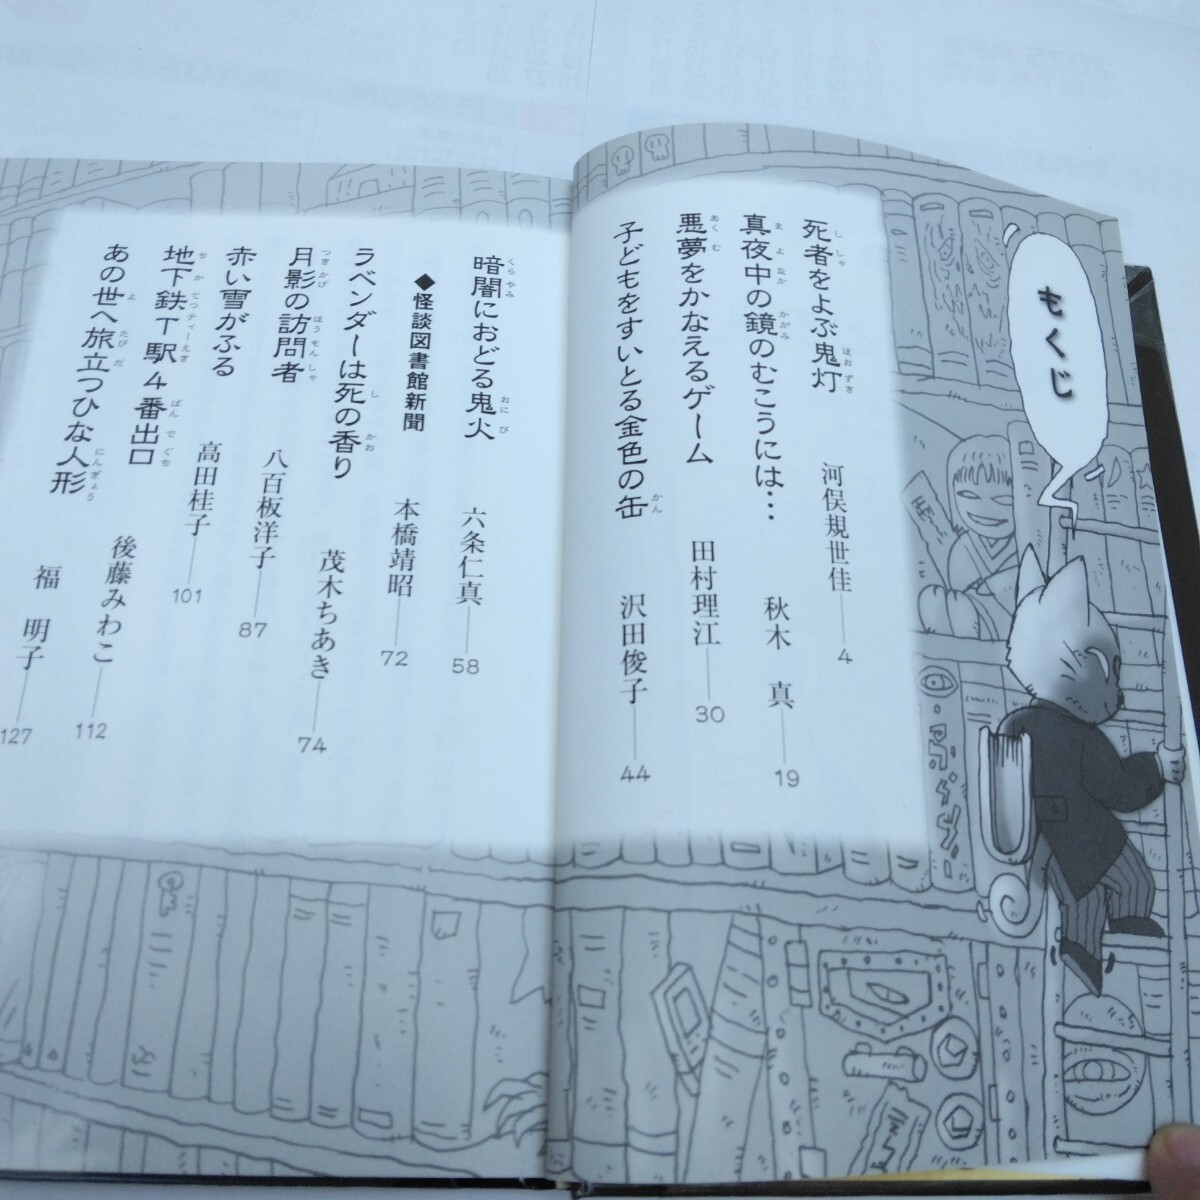 もくじ
死者をよぶ鬼灯 河俣規世佳――4
真夜中の鏡のむこうには… 秋木 真――19
悪夢をかなえるゲーム 田村理江――30
子どもをすいとる金色の缶 沢田俊子――44
暗闇におどる鬼火 六条仁真――58
◆怪談図書館新聞 本橋靖昭――72
ラベンダーは死の香り 茂木ちあき――74
月影の訪問者 八百板洋子――87
赤い雪がふる 高田桂子――101
地下鉄T駅4番出口 後藤みわこ――112
あの世へ旅立つひな人形 福 明子――127